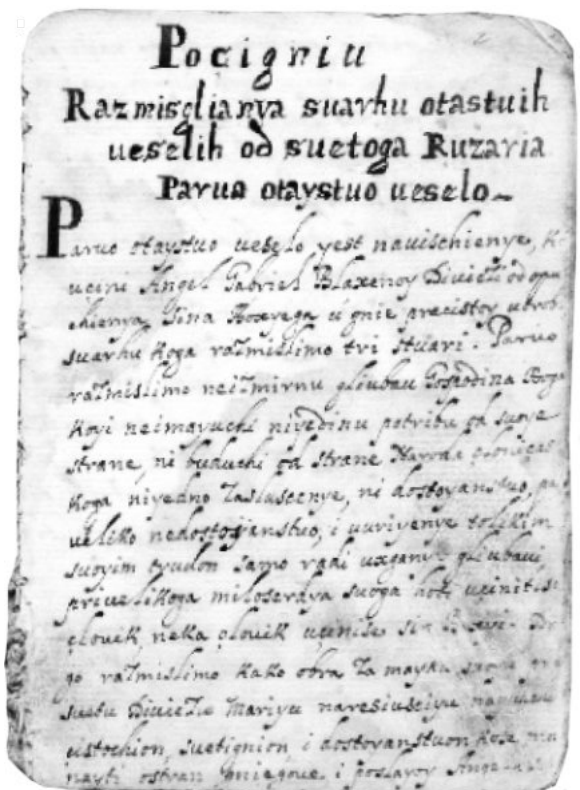 Pocigniu
Razmisglianya suarhu otastuih
ueselih od suetoga Ruzaria
Paruo otaystuo ueselo
Paruo otaystuo ueselo yest nauischienye,
ucini Angel Gabriel Blaxenoy Diuici od
chienya Sina Boxyega ù gnie precistoy utrobi
suarhu koga razmislimo tri stuari. Paruo
razmislimo neizmirnu gliubau Gospodina Boga
koyi neimayuchi niyednu potribu od suoye
strane, ni buduchi od strane Naroda
koga niyedno zaslusenye, ni dostoyanstuo,
ueliko nedostoyanstuo, i uuriyenye tolikim
suoyim trudon samo radi gliubaui
priuelikoga miloserdya suoga hoti ucinitise
clouik, neka clouik ucinise sin
go razmislimo kako obra za mayku
suetu Diuicu Mariyu
cistochion, suetignion i dostoyanstuon
nayti ostran gniegoue, i poslayoy